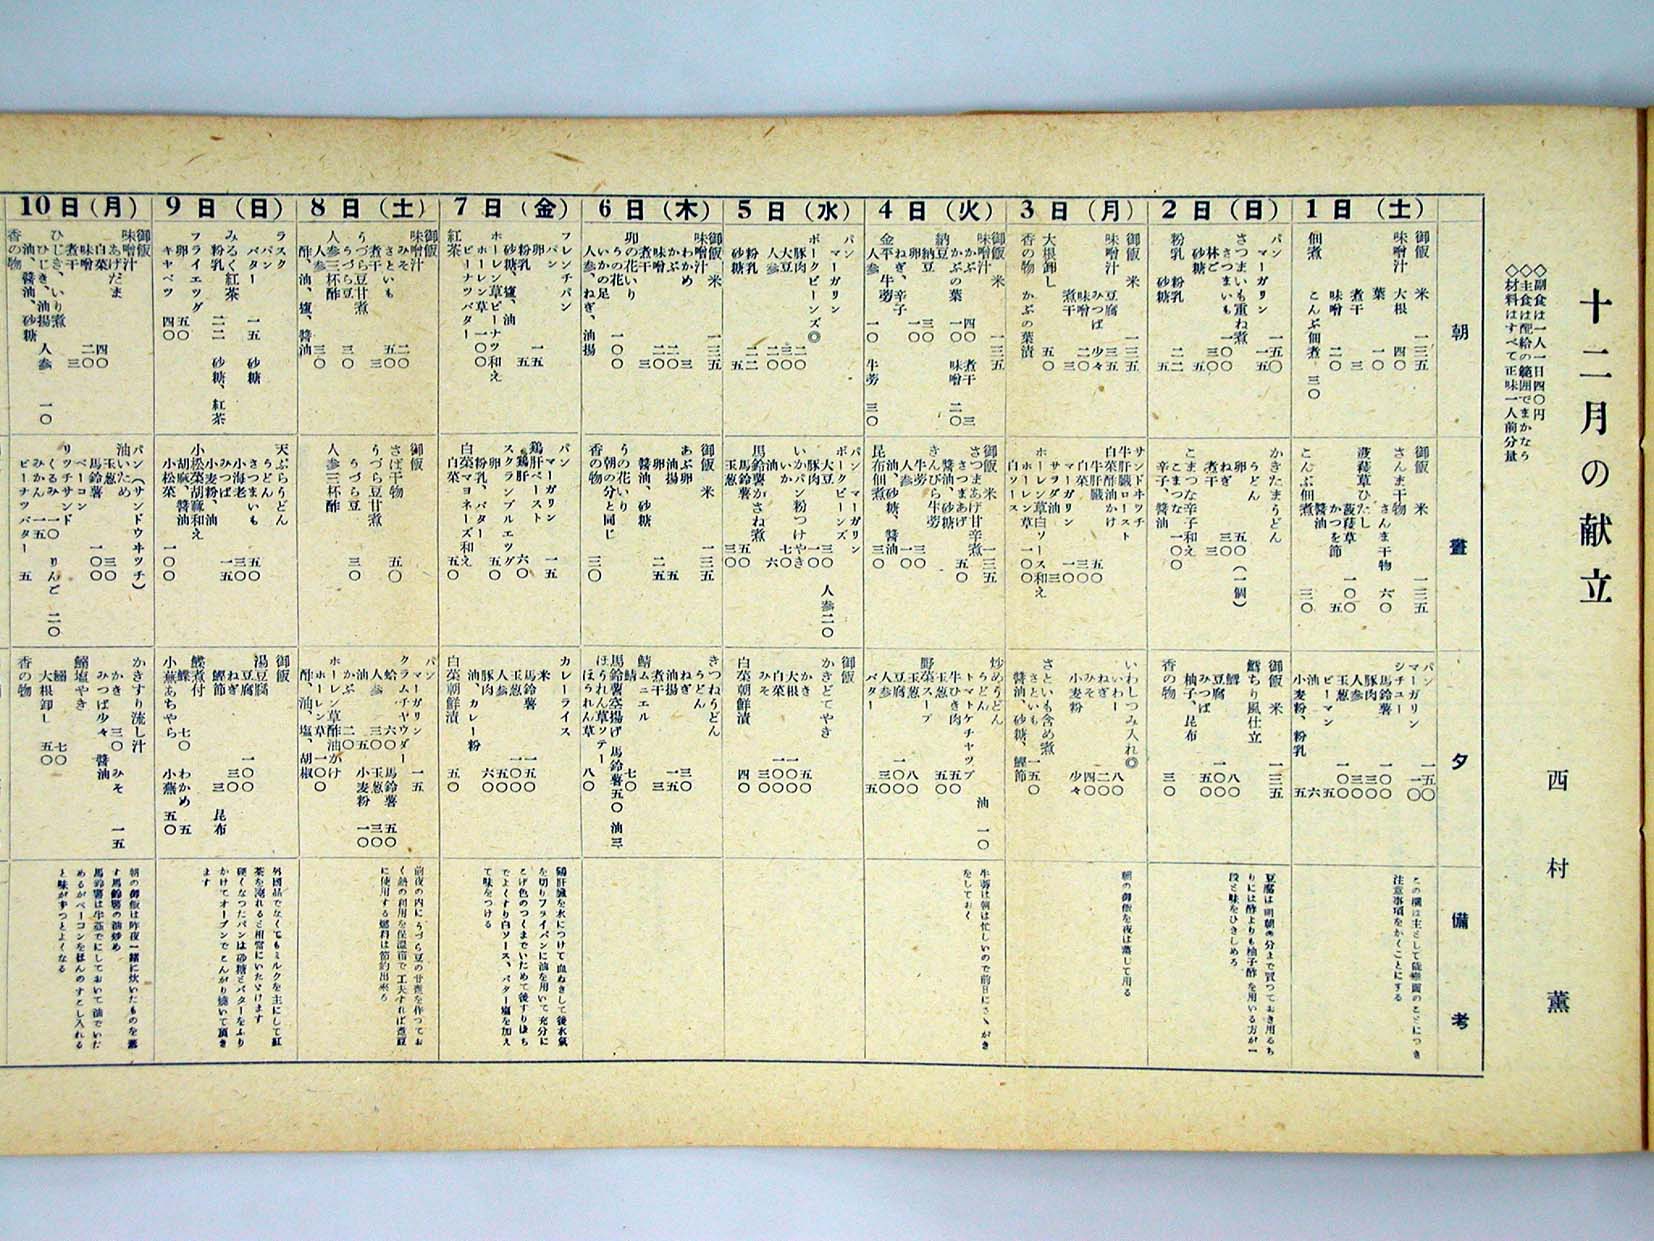 十二月の献立
西村薫
◇副食は一人一日四〇円
◇主食は配給の範囲でまかなう
◇材料はすべて正味一人前分量
朝
晝
夕
備考
1日(土)
御飯 米 一三五
味噌汁 大根 四〇
葉 一〇
煮干 三
味噌 二〇
佃煮 こんぶ佃煮 三〇
御飯 米 一三五
さんま干物
さんま干物 六〇
菠薐草ひたし
菠薐草 一〇〇
かつを節 五
醤油
こんぶ佃煮 三〇
パン 一五〇
マーガリン 一〇
シチュー
馬鈴薯 一〇〇
豚肉 三〇
人参 三〇
玉葱 五〇
ピーマン 一〇
油 六
小麦粉、粉乳 五五
この欄は主として栄養面のことにつき
注意事項をかくことにする
2日(日)
パン 一五〇
マーガリン 一五
さつまいも重ね煮
さつまいも 一〇〇
林ご 三〇
砂糖 五
粉乳 粉乳 二二
砂糖 五
かきたまうどん
うどん
卵 五〇(一個)
ねぎ 三〇
煮干 三
こまつな辛子和え
こまつな 一〇〇
辛子、醤油
御飯 米 一三五
鱈ちり風仕立
鱈 八〇
豆腐 一〇〇
みつば 五
柚子、昆布
香の物 三〇
豆腐は明朝の分まで買つておき用るち
りには酢よりも柚子酢を用いる方が一
段と味をひきしめる
3日(月)
御飯 米 一三五
味噌汁 豆腐 三五
みつば 少々
味噌 二〇
煮干 三
大根卸し 五〇
香の物 かぶの葉漬
サンドヰッチ
牛肝臓ロースト
白菜酢油かけ
牛肝臓 五〇
白菜 一〇〇
マーガリン 一〇
サラダ油 三
ホーレン草白ソース和え
ホーレン草 一〇〇
白ソース
いわしつみ入れ◎
いわし 八〇
ねぎ 二〇
みそ 二〇
小麦粉 少々
さといも含め煮
さといも 一五〇
醤油、砂糖、鰹節
朝の御飯を夜は蒸して用る
4日(火)
御飯 米 一三五
味噌汁
かぶ 四〇 煮干 三
かぶの葉 一〇 味噌 二〇
納豆
納豆 三〇
卵 一〇
ねぎ、辛子
金平 牛蒡
人参 一〇 牛蒡 三〇
御飯 米 一三五
さつまあげ甘辛煮
さつまあげ 五〇
醤油、砂糖
きんぴら牛蒡
牛蒡 三〇
人参 一〇
油、砂糖、醤油
昆布佃煮 三〇
炒めうどん
うどん
トマトケチャップ 油 一〇
牛ひき肉 五〇
玉葱 五〇
野菜スープ
豆腐 一〇〇
玉葱
人参 三〇
バター 五
牛蒡は朝は忙しいので前日にさゝがき
をしておく
5日(水)
パン
マーガリン
ポークビーンズ◎
豚肉 二〇
大豆 三〇
人参 二〇
粉乳 二二
砂糖 五
パン マーガリン
ポークビーンズ
大豆 三〇 人参二〇
豚肉 一〇
いかパン粉つけやき
いか 七〇
油 六
馬鈴薯かさね煮
馬鈴薯 五〇
玉葱 三〇
御飯
かきどてやき
かき 五〇
大根 一〇〇
白菜 一〇〇
みそ 三〇
白菜朝鮮漬 四〇
6日(木)
御飯 米 一三五
味噌汁
わかめ 三
かぶ 二〇
味噌 二〇
煮干 三
卯の花いり
うの花 一〇〇
いかの足
人参、ねぎ、油揚
御飯 米 一三五
あぶ卵
油揚 五
卵 二五
醤油、砂糖
うの花いり
朝の分と同じ
香の物 三〇
きつねうどん
うどん
ねぎ 三〇
油揚 一五
煮干 五
鯖ムニエル
鯖 七〇
馬鈴薯空揚げ 馬鈴薯五〇 油三
ほうれん草ソテー
ほうれん草 八〇
7日(金)
フレンチパン
パン 一五
卵 五
粉乳
砂糖、塩、油
ホーレン草ピーナツ和え
ホーレン草 一〇〇
ピーナツバター
紅茶
パン
マーガリン 一五
鶏肝ペースト
鶏肝 六〇
スクランブルエッグ
卵 五〇
粉乳、バター
白菜マヨネーズ和え
白菜 五〇
カレーライス
米 一五〇
馬鈴薯 五〇
玉葱 一〇〇
人参 五〇
豚肉 六〇
油、カレー粉
白菜朝鮮漬 五〇
鶏肝臓を水につけて血ぬきして後水気
を切りフライパンに油を用いて充分に
こげ色のつくまでいためて後すりばち
でよくすり白ソース、バター塩を加え
て味をつける
8日(土)
御飯
味噌汁
みそ 二〇
さといも 五〇
煮干
うづら豆甘煮
うづら豆 三〇
人参三杯酢
人参 三〇
酢、油、塩、醤油
御飯
さば干物 五〇
うづら豆甘煮
うづら豆 三〇
人参三杯酢
パン
マーガリン 一五
クラムチャウダー
蛤 六〇 馬鈴薯 五〇
人参 三〇 玉葱 三〇
油 五 小麦粉 一〇
かぶ 二〇
ホーレン草酢油かけ
ホーレン草 一〇〇
酢、油、塩、胡椒
前夜の内にうづら豆の甘煮を作つてお
く熱の利用を保温箱で工夫すれば煮豆
に使用する燃料は節約出来る
9日(日)
ラスク
パン
バター 一五 砂糖
みるく紅茶
粉乳 二二 砂糖、紅茶
フライエッグ
卵 五〇
キャベツ 四〇
天ぷらうどん
うどん
さつまいも 五〇
小海老 三〇
みつば 一五
小麦粉、油
小松菜胡麻和え
胡麻、醤油
小松菜 一〇〇
御飯
湯豆腐
豆腐 一〇〇
ねぎ 三〇
鰹節 三 昆布
鰈煮付
鰈 七〇 わかめ 五
小蕪あちやら 小蕪 五〇
外國品でなくてもミルクを主にして紅
茶を淹れると相當にいたゞけます
硬くなつたパンは砂糖とバターをふり
かけてオーブンでこんがり焼いて頂き
ます
10日(月)
御飯
味噌汁
あげだま
白菜 四〇
味噌 二〇
煮干 三
ひじき、いり煮
ひじき、油揚 人参 一〇
油、醤油、砂糖
香の物
パン(サンドウヰッチ)
油いため
玉葱 三〇
馬鈴薯 一〇〇
ベーコン
リッチサンド
くるみ 一〇 りんご 二〇
みかん 一五
ピーナツバター 五
かきすり流し汁
かき 三〇 みそ 一五
みつば少々 醤油
鰯塩やき
鰯 七〇
大根卸し 五〇
香の物
朝の御飯は昨夜一緒に炊いたものを蒸
す馬鈴薯の油炒め
馬鈴薯は半蒸でにしておいて油でいた
めるがベーコンをほんのすこし入れる
と味がずつとよくなる